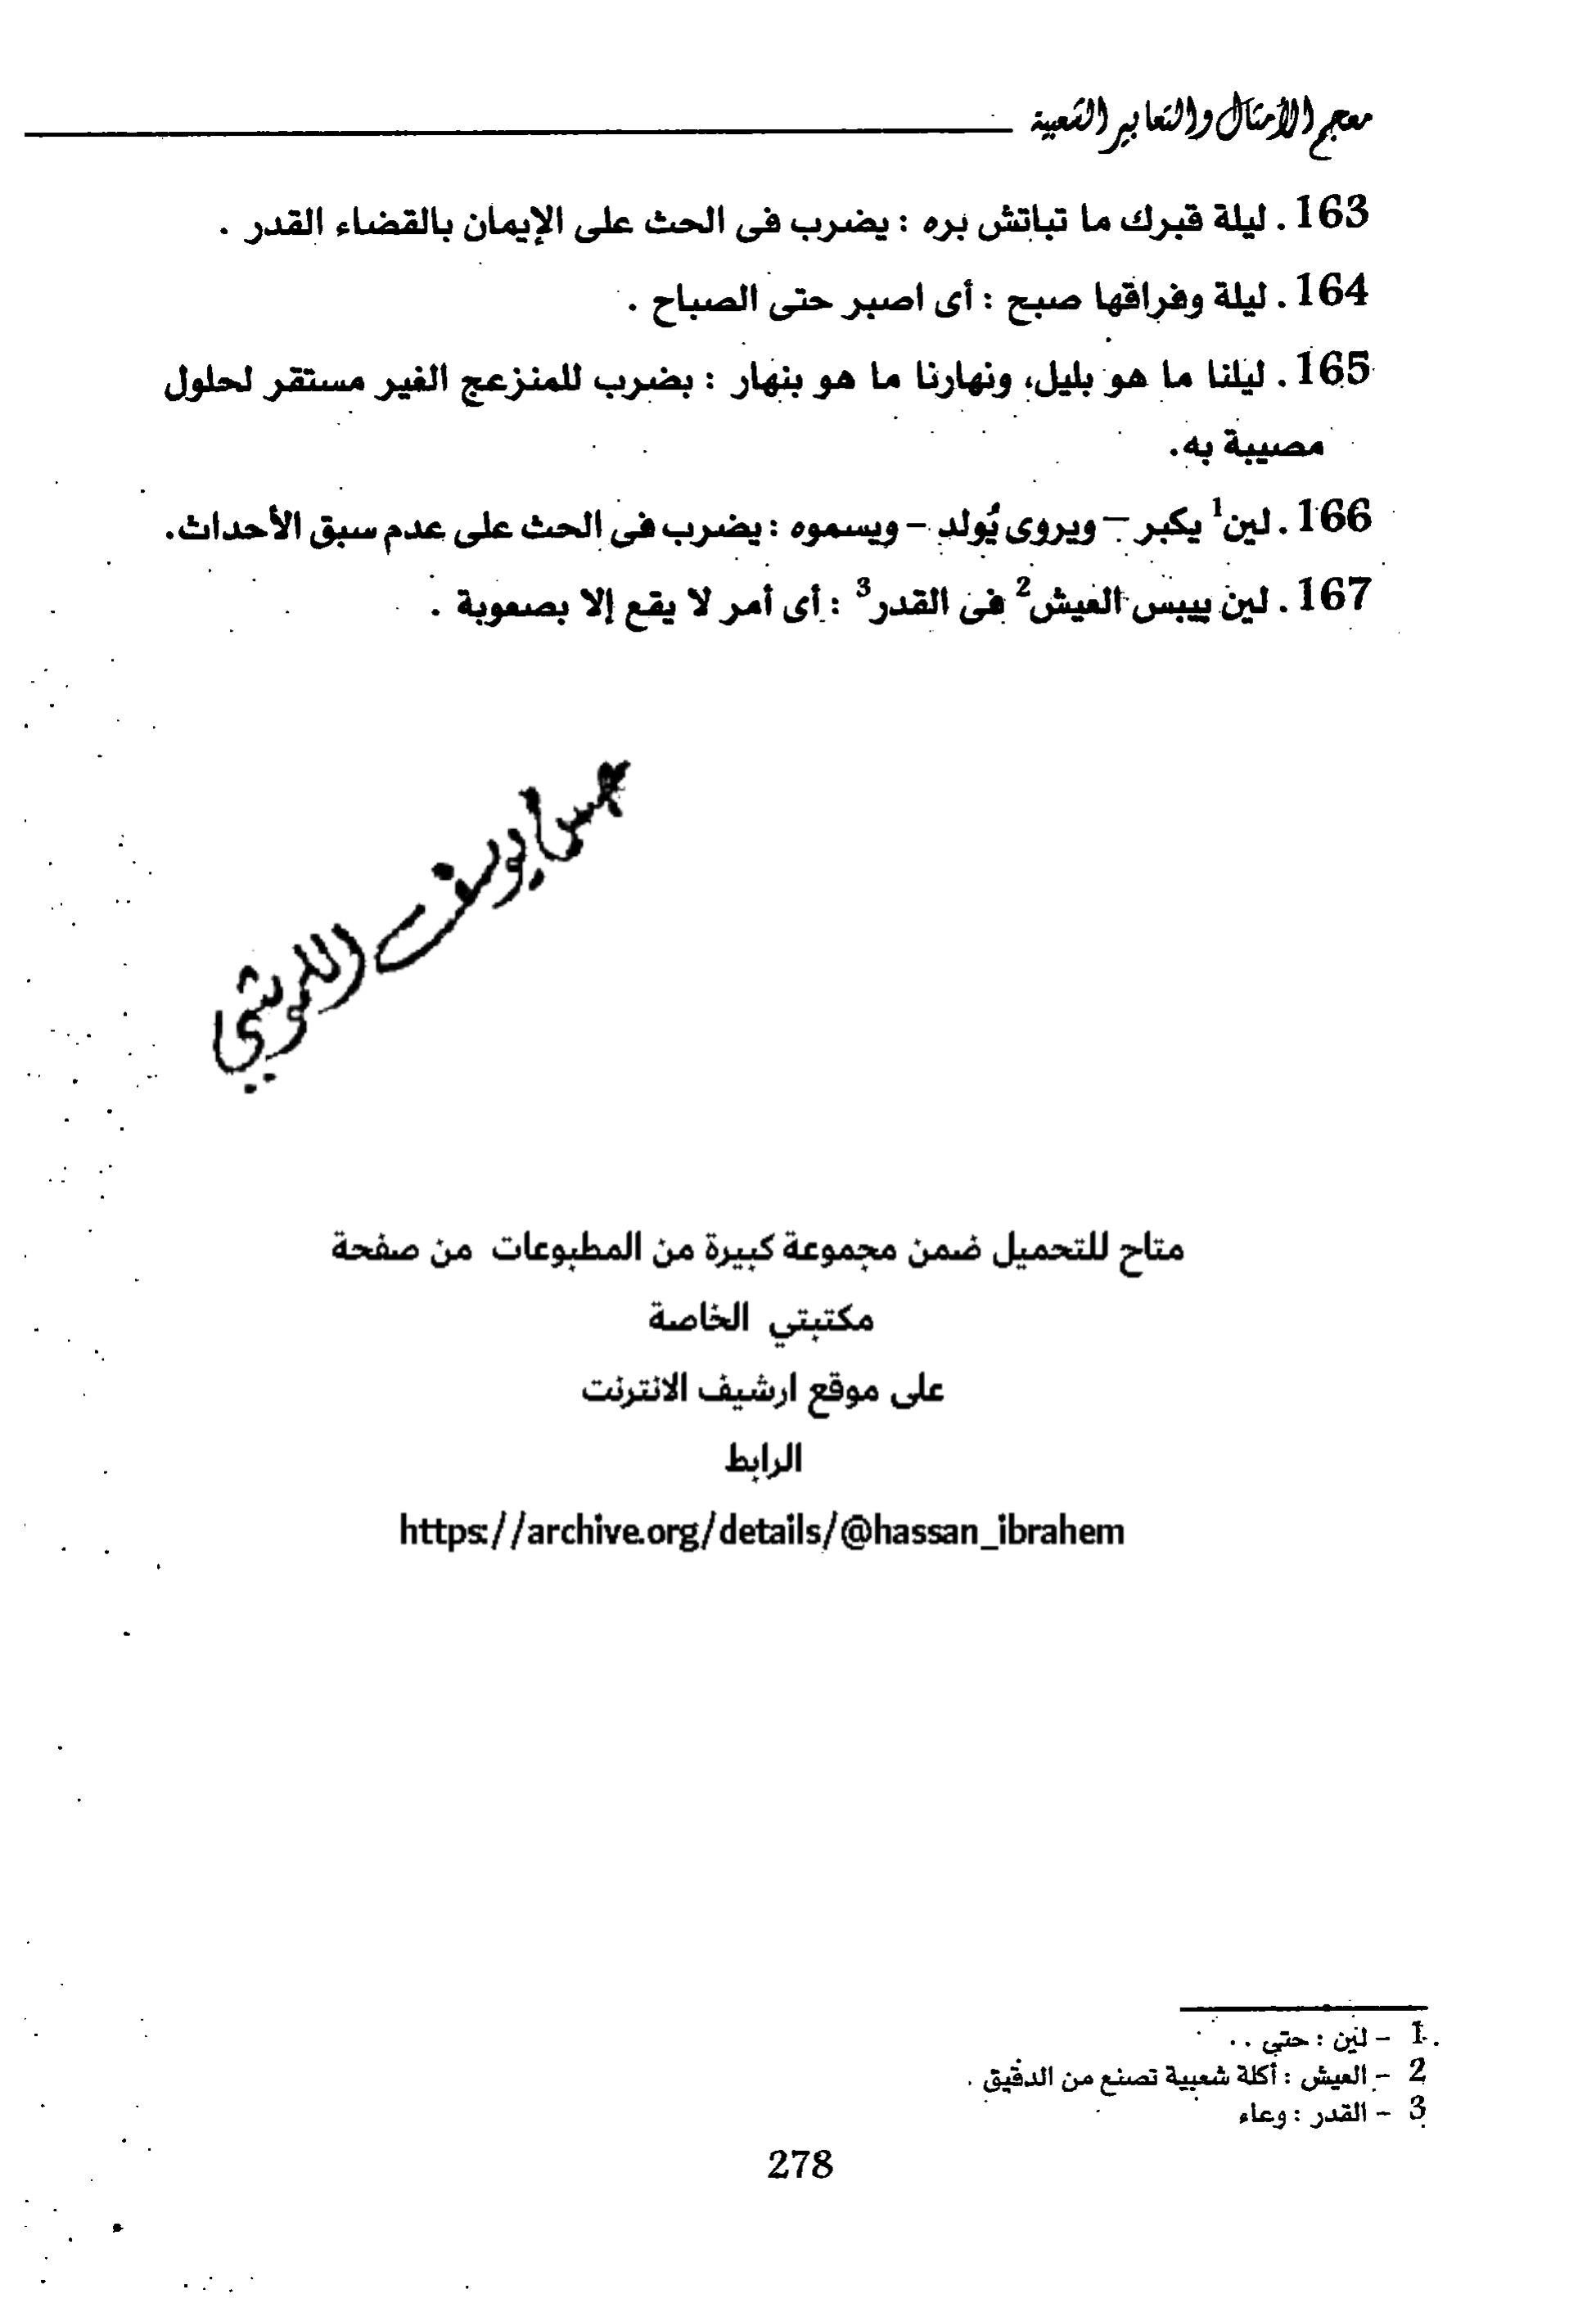 معجم الأمثال والتعابير الشعبية
163. ليلة قبرك ما تباتش بره : يضرب فى الحث على الإيمان بالقضاء القدر .
164. ليلة وفراقها صبح : أى اصبر حتى الصباح .
165. ليلنا ما هو بليل، ونهارنا ما هو بنهار : بضرب للمنزعج الغير مستقر لحلول
مصيبة به.
166. لين1 يكبر – ويروى يُولد – ويسموه : يضرب فى الحث على عدم سبق الأحداث.
167. لين ييبس العيش2 فى القدر3 : أى أمر لا يقع إلا بصعوبة .
يوسف
متاح للتحميل ضمن مجموعة كبيرة من المطبوعات من صفحة
مكتبتي الخاصة
على موقع ارشيف الانترنت
الرابط
https://archive.org/details/@hassan_ibrahem
1 – لين : حتى . .
2 – العيش : أكلة شعبية تصنع من الدقيق .
3 – القدر : وعاء
278